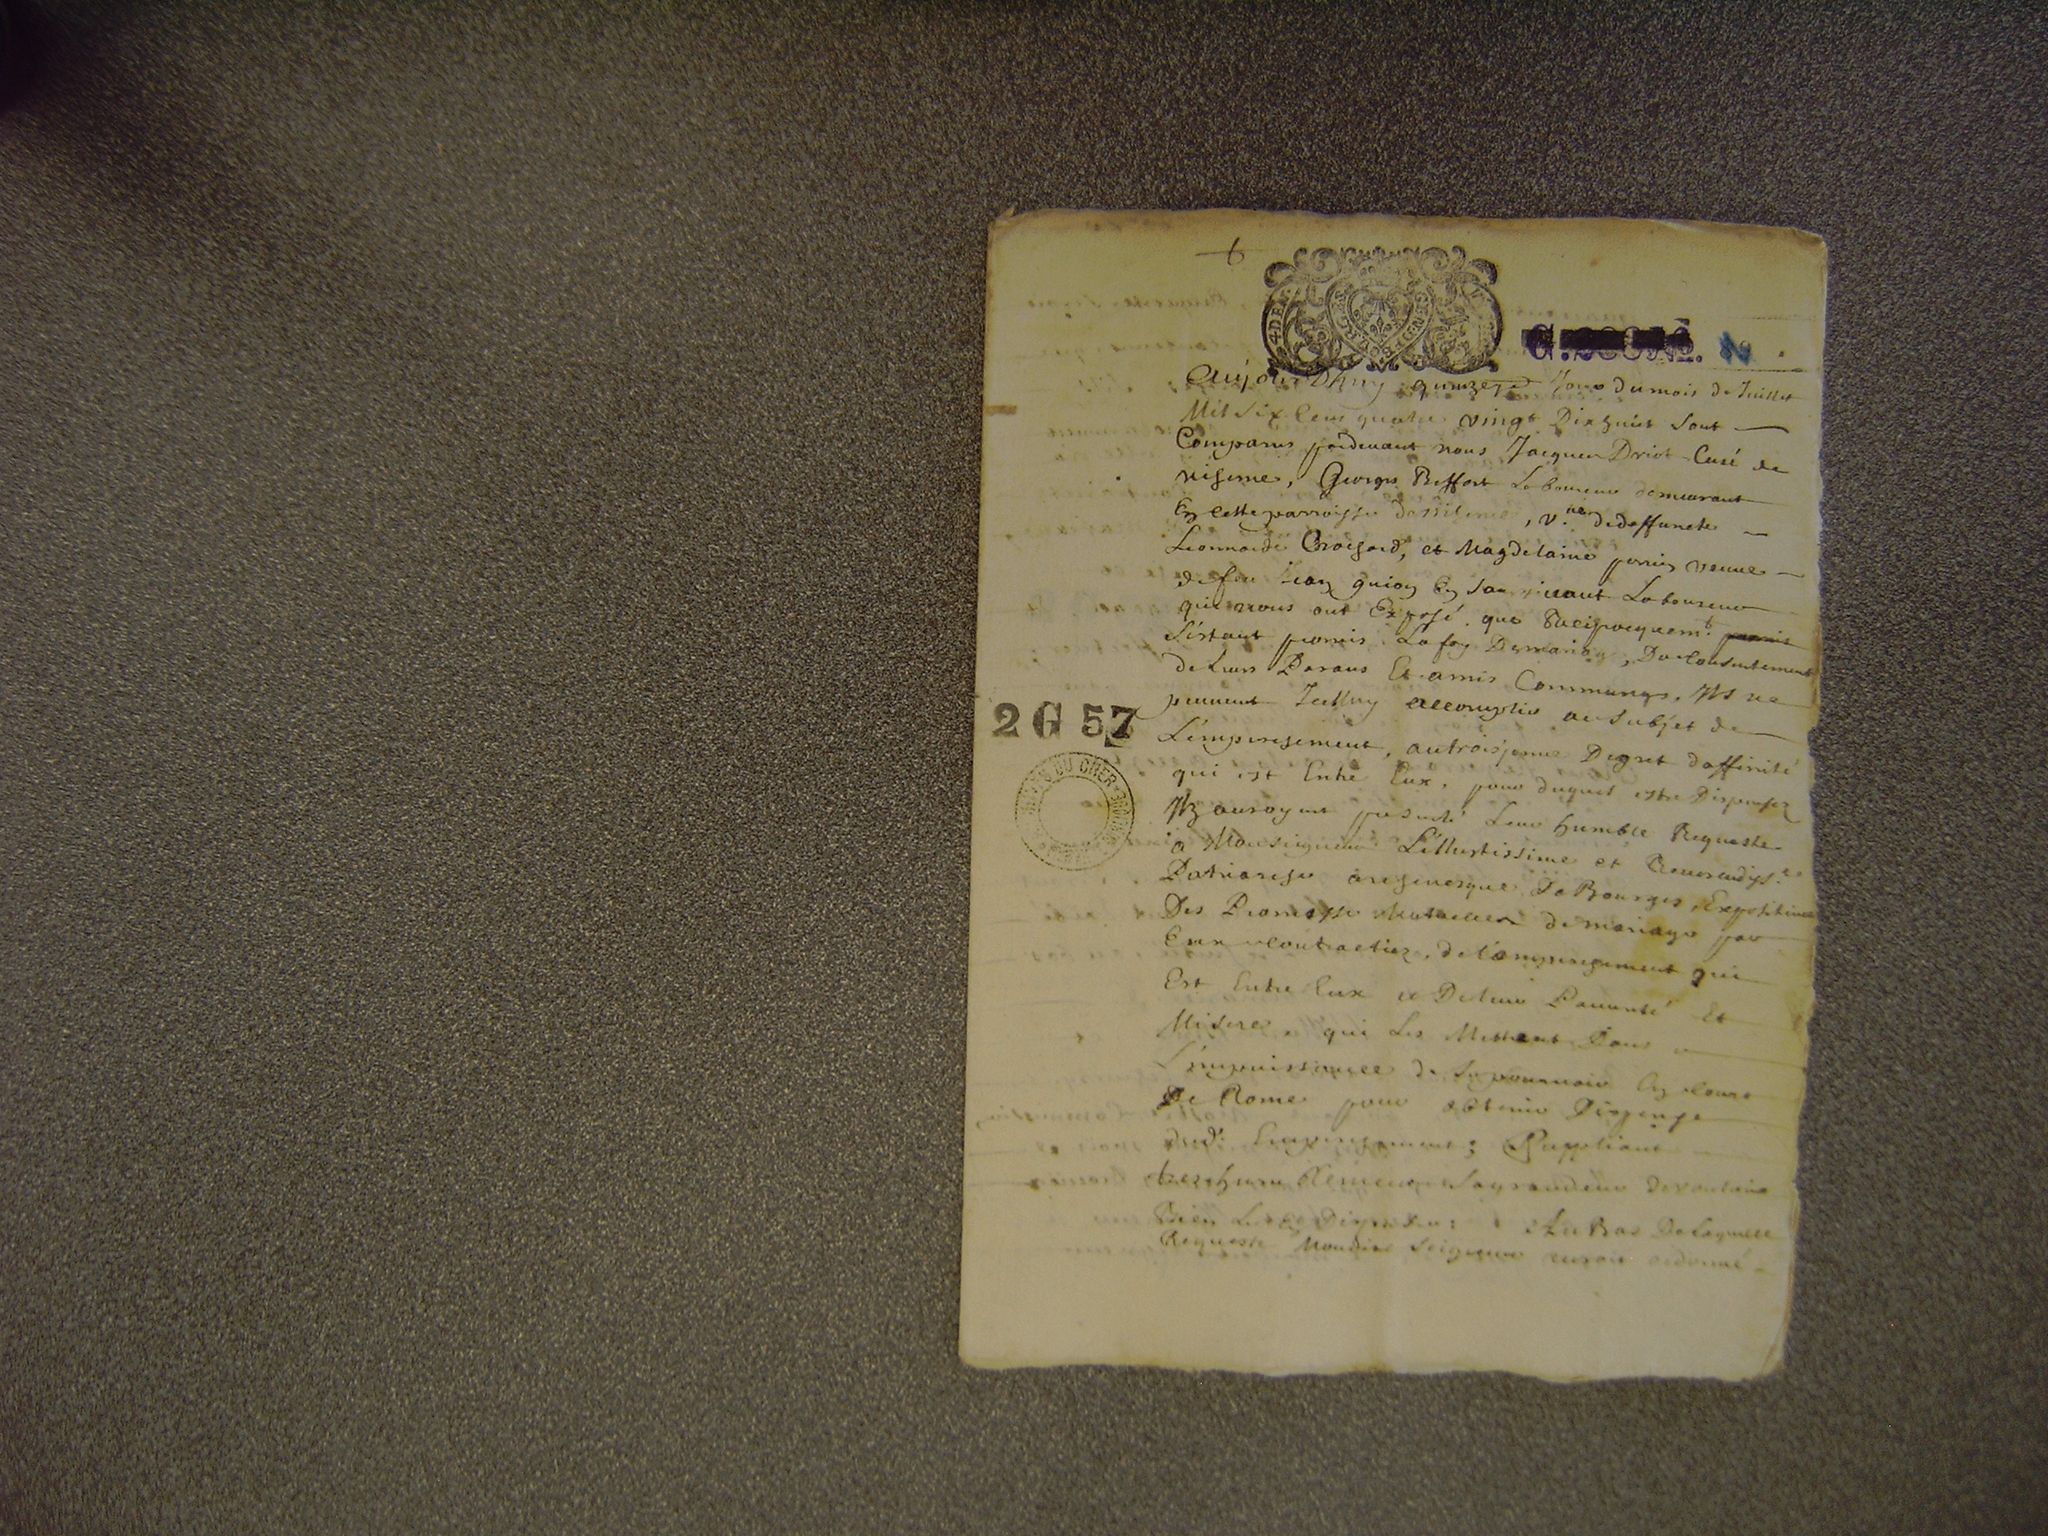 Aujourdhuy quinze Jour du mois de Juillet
Mil Six Cens quatre vingt Dix huit Sont
Comparus pardevant nous Jacques Driot Curé de
Georges Beffort Laboureur demeurant
En cette parroisse, v.er de deffuncte
Lionnarde et Magdelaine veuve
de feu Jean guion En son vivant Laboureur
qui nous ont Exposé que Reciproquem.t
S'estant promis La foy De mariage, Du Consentement
de Leurs Parans Et amis Communs, Ils ne
peuvent Icelluy accomplir au Subjet de
L'empeschement, au troisjeme Degret daffinité
qui est Entre Eux, pour duquel estre Dispensez
Ils auroyent presenté Leur humble Requeste
a Monseigneur L'Illustissime et Reverendiss.e
Patriarche archevesque De Bourges, Expositive
Des Promesse Mutuelles de mariage par
Eux contractiez, de l'empeschement qui
Est Entre Eux et De Leur Pauvreté Et
Misere, qui Les Mettent Dans
L'impuissance de Se pourvoir En cour
De Rome pour obtenir Dispense
dud.t Empeschement; Suppliant
tres humblement Sa grandeur de vouloir
Bien Les En Dispenser: Au Bas De Laquelle
Requeste Mondit Seigneur auroit ordonné
2 G 57
DU CHER